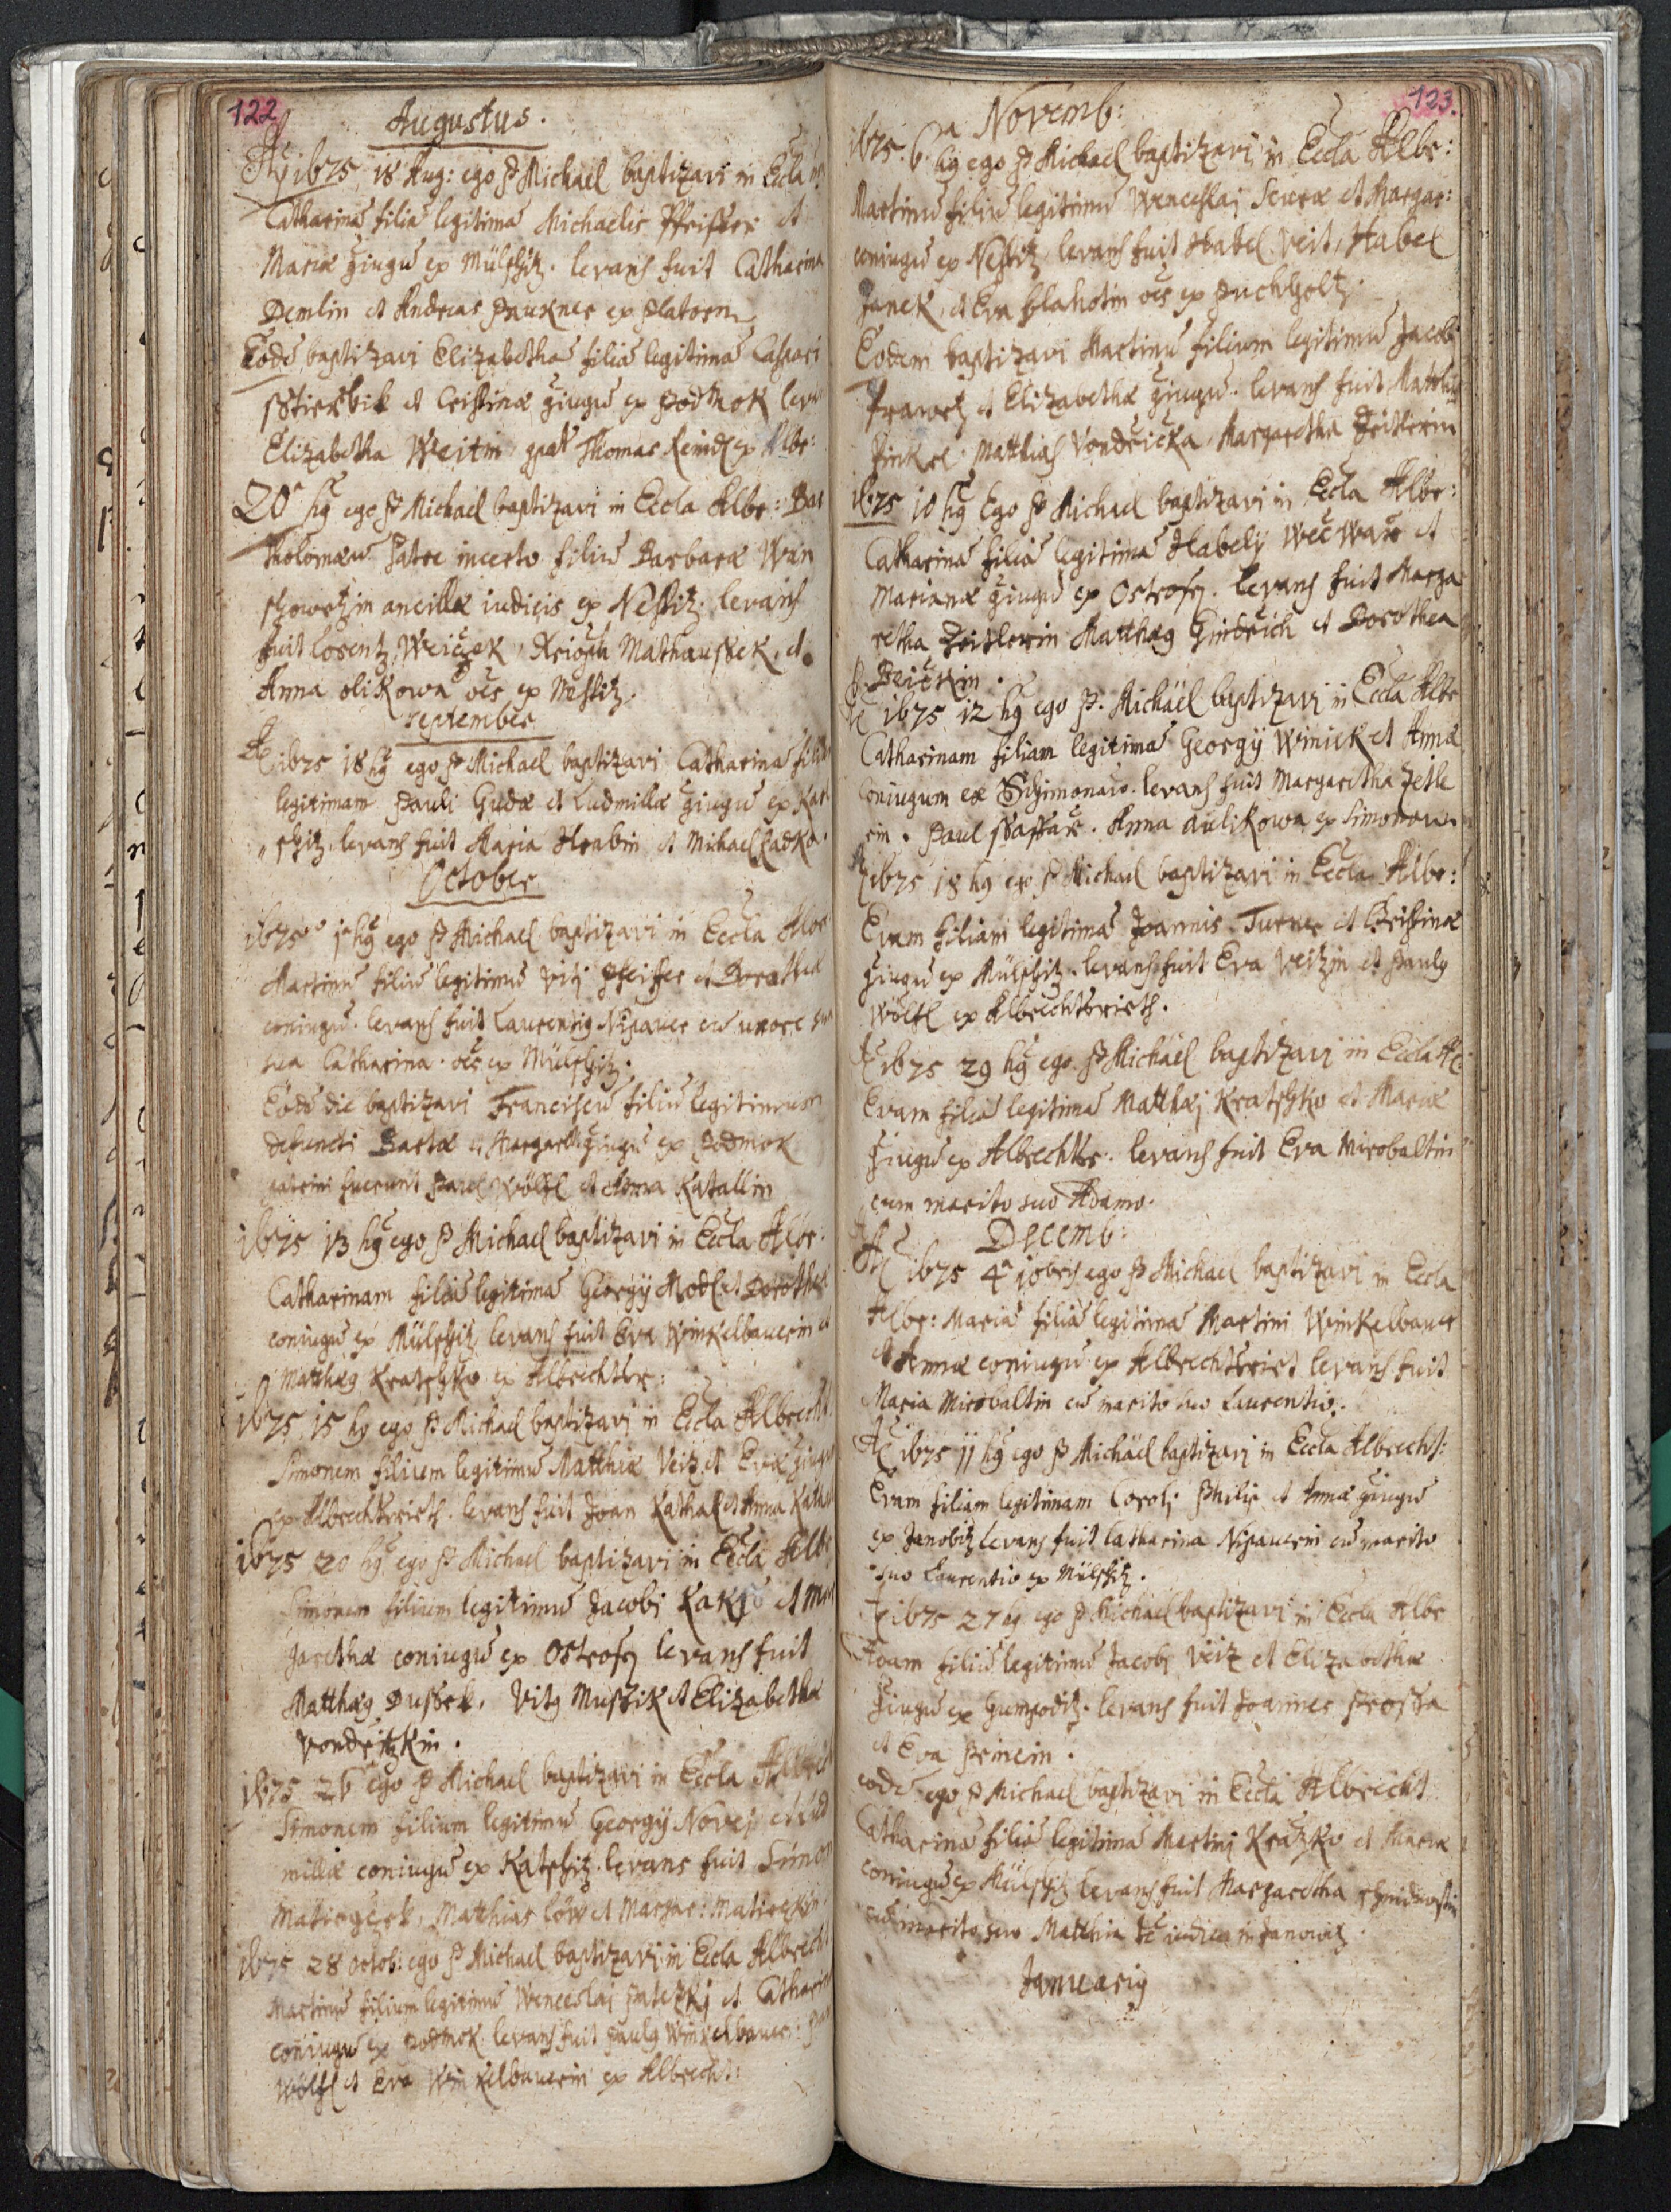 122
Augustus.
Ao 1675 18 Aug: ego P Michael baptizavi in Eccla
Catharinā filiā legitimā Michaelis Pfeiffer et
Mariæ ꝯiugū ex Mülchitz. levans fuit Catharina
Demlin et Andreas Paukner ex Platorn
Eodē baptizavi Elizabethā filiā legitimā Caspari
et Cristinæ ꝯiugū ex Podmok
Elizabetha Weitin Thomas ex Albr:
20 hg ego P Michael baptizavi in Eccla Albr: Bar
tholomæū Patre incerto filiū Barbaræ Wan
ancillæ iudicis ex Neslitz. levans
fuit Lorentz Weiczek, Mathausfek, et
Anna olikowa oēs ex Neslitz.
September
Ao 1675 18 hg ego P Michael baptizavi Catharinā filiā
legitimam Pauli Gudæ et Ludmillæ ꝯiugū ex Kat
schitz. levans fuit Maria Hrabin et Michael Ladka.
October
1675 1 hg ego P Michael baptizavi in Eccla Albr
Martinū filiū legitimū Viti Pfeiffer et Dorotheæ
coniugū. levans fuit Laurentig Nipauer cū uxore
sua Catharina. oēs ex Mülchitz.
Eodē die baptizavi Franciscū filiū legitimum
defuncti Bartæ et Margarethæ ꝯiugū ex Podmok
patrini fuerunt Paul Wölfl et Anna Katallin
1675 13 hg ego P Michael baptizavi in Eccla Albr.
Catharinam filiā legitimā Georgÿ Modl et Dorotheæ
coniugū ex Mülchitz levans fuit Eva Winkelbauerin et
Matthæg Kratschko ex Albrechtsr:
1675 15 hg ego P Michael baptizavi in Eccla Albrecht.
Simonem filium legitimū Matthiæ Veitz et Evæ ꝯiugū
ex Albrechtsrieth. levans fuit Joan Kathal et Anna
1675 20 hg ego P Michael baptizavi in Eccla Albr
Simonem filium legitimū Jacobi et Mar
garethæ coniugū ex Ostrosn levans fuit
Matthæg Dussek, Vitg Mussik et Elizabetha
Vondritzkin.
1675 26 ego P Michael baptizavi in Eccla Albrecht
Simonem filium legitimū Georgÿ et Lud
millæ coniugū ex Katschitz. levans fuit Simon
Matiegczek, Matthias Löw et Margar:
1675 28 octob: ego P Michael baptizavi in Eccla Albrecht
Martinū filium legitimū Wenceslai et Catharinæ
coniugū ex Podmok levans fuit Paulg Winkelbauer:
Wölfl et Eva Winkelbauerin ex Albrecht:
123.
Novemb:
1675. 6.a hg ego P Michael baptizavi in Eccla Albr:
Martinū filiū legitimū Wenceslai et Margar:
coniugū ex Neslitz levans fuit Habel Veit, Habel
Janek, et Eva blahotin oēs ex Puchholtz.
Eodem baptizavi Martinū filium legitimū Jacobi
et Elizabethæ ꝯiugū. levans fuit Matthig
Matthias Vondricka, Margaretha Zeitlerin
1675 10 hg Ego P Michael baptizavi in Eccla Albr:
Catharinā filiā legitimā Habelÿ Wecwar et
Marianæ ꝯiugū ex Ostrosn. levans fuit Marga
retha Zeitlerin Matthæg Gindrich et Dorothea
Beickin.
Ao 1675 12 hg ego P. Michäel baptizavi in Eccla Albr
Catharinam filiam legitimā Georgÿ Winick et Annæ
Coniugum ex Schimonaw. levans fuit Margaretha Zetle
rin. Paul Anna aulikowa ex Simonaw
Ao 1675 18 hg ego P Michael baptizavi in Eccla Albr:
Evam filiam legitimā Joannis Turner et Cristinæ
ꝯiugū ex Mülchitz. levans fuit Eva Veitzin et Paulg
Wölfl ex Albrechtsrieth.
Ao 1675 29 hg ego P Michäel baptizavi in Eccla Al:
Evam filiā legitimā Matthæi Kratschko et Mariæ
ꝯiugū ex Albrechtsr. levans fuit Eva Mirobaltin
cum marito suo Adamo.
Decemb:
Ao 1675 4a 10bris ego P Michael baptizavi in Eccla
Albr: Mariā filiā legitimā Martini Winkelbauer
et Annæ coniugū ex Albrechtsriet levans fuit
Maria Mirobaltin cū marito suo Laurentio.
Ao 1675 11 hg ego P Michäel baptizavi in Eccla Albrechs:
Evam filiam legitimam Caroli Philip et Annæ ꝯiugū
ex Janobitz levans fuit Catharina Nipauerin cū marito
suo Laurentio ex Mülchitz.
Ao 1675 27 hg ego P Michael baptizavi in Eccla Albr
Adam filiū legitimū Jacobi Veitz et Elizabethæ
ꝯiugū ex Gumpoditz. levans fuit Joannes Prossa
et Eva
eodē ego P Michael baptizavi in Eccla Albrecht
Catharinā filiā legitimā Martini et Mariæ
coniugū ex Mülchitz levans fuit Margaretha
cū marito suo Matthia iudice in Janowitz.
Januarig